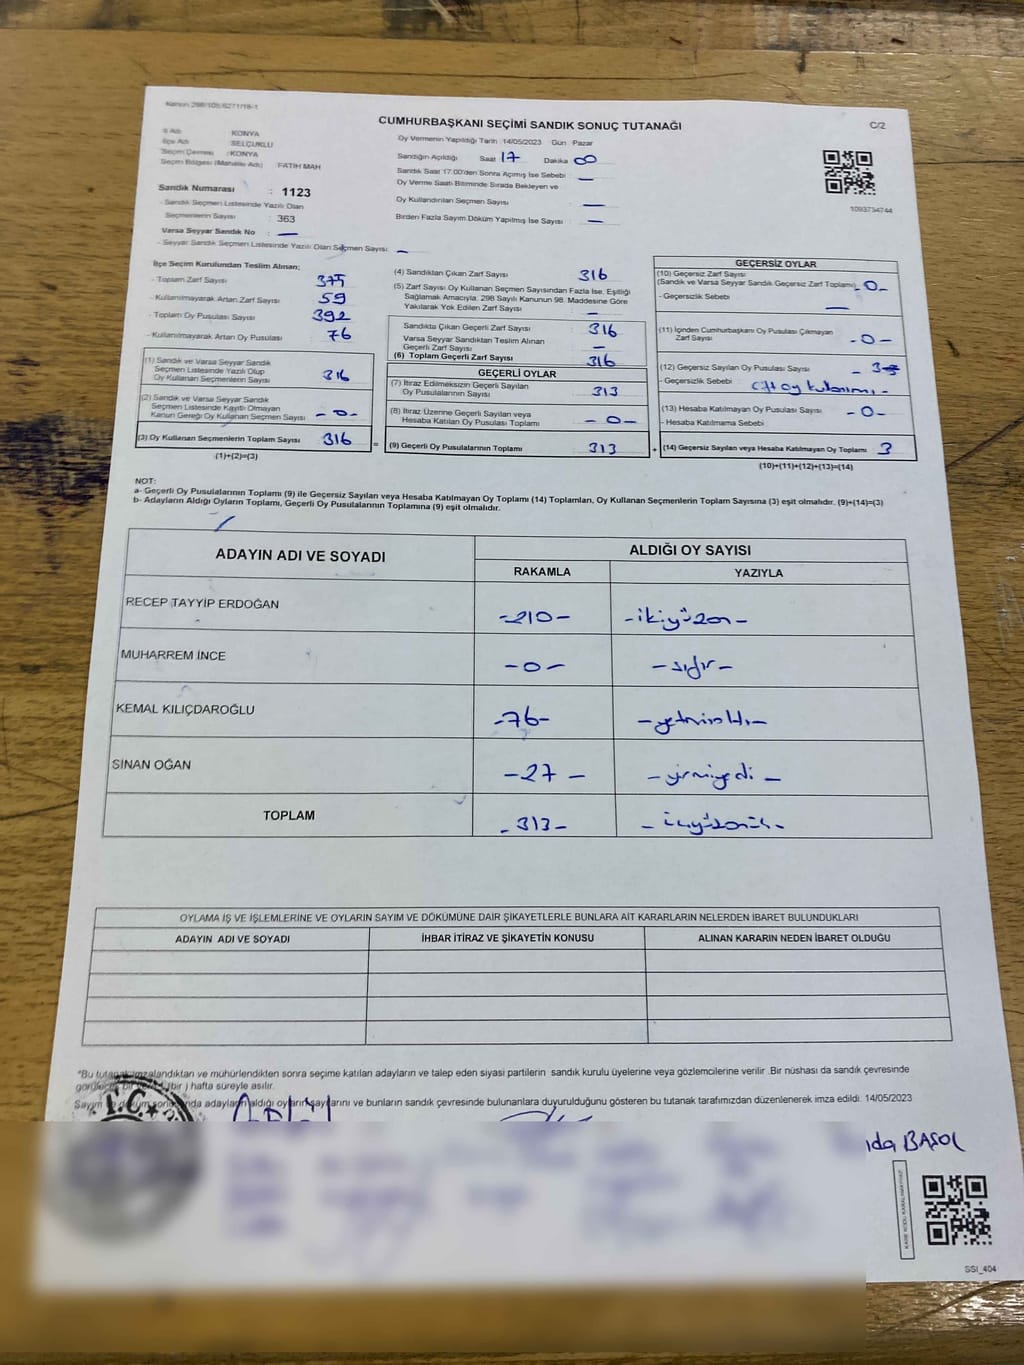 Kanun 298/105/6271/18-1
CUMHURBAŞKANI SEÇİMİ SANDIK SONUÇ TUTANAĞI
C/2
İl Adı : KONYA
İlçe Adı : SELÇUKLU
Seçim Çevresi : KONYA
Seçim Bölgesi (Mahalle Adı) : FATİH MAH
Sandık Numarası : 1123
- Sandık Seçmen Listesinde Yazılı Olan
Seçmenlerin Sayısı : 363
Varsa Seyyar Sandık No : —
- Seyyar Sandık Seçmen Listesinde Yazılı Olan Seçmen Sayısı: —
Oy Vermenin Yapıldığı Tarih : 14/05/2023 Gün Pazar
Sandığın Açıldığı Saat 17 Dakika 00
Sandık Saat 17.00'den Sonra Açımış İse Sebebi —
Oy Verme Saati Bitiminde Sırada Bekleyen ve
Oy Kullandırılan Seçmen Sayısı —
Birden Fazla Sayım Döküm Yapılmış İse Sayısı —
1093734744
İlçe Seçim Kurulundan Teslim Alınan;
- Toplam Zarf Sayısı 375
- Kullanılmayarak Artan Zarf Sayısı 59
- Toplam Oy Pusulası Sayısı 392
- Kullanılmayarak Artan Oy Pusulası 76
(1) Sandık ve Varsa Seyyar Sandık
Seçmen Listesinde Yazılı Olup
Oy Kullanan Seçmenlerin Sayısı 316
(2) Sandık ve Varsa Seyyar Sandık
Seçmen Listesinde Kayıtlı Olmayan
Kanun Gereği Oy Kullanan Seçmen Sayısı -0-
(3) Oy Kullanan Seçmenlerin Toplam Sayısı 316 =
(1)+(2)=(3)
(4) Sandıktan Çıkan Zarf Sayısı 316
(5) Zarf Sayısı Oy Kullanan Seçmen Sayısından Fazla İse, Eşitliği
Sağlamak Amacıyla, 298 Sayılı Kanunun 98. Maddesine Göre
Yakılarak Yok Edilen Zarf Sayısı —
Sandıkta Çıkan Geçerli Zarf Sayısı 316
Varsa Seyyar Sandıktan Teslim Alınan
Geçerli Zarf Sayısı —
(6) Toplam Geçerli Zarf Sayısı 316
GEÇERLİ OYLAR
(7) İtiraz Edilmeksizin Geçerli Sayılan
Oy Pusulalarının Sayısı 313
(8) İtiraz Üzerine Geçerli Sayılan veya
Hesaba Katılan Oy Pusulası Toplamı -0-
(9) Geçerli Oy Pusulalarının Toplamı 313 +
GEÇERSİZ OYLAR
(10) Geçersiz Zarf Sayısı
(Sandık ve Varsa Seyyar Sandık Geçersiz Zarf Toplamı) -0-
- Geçersizlik Sebebi —
(11) İçinden Cumhurbaşkanı Oy Pusulası Çıkmayan
Zarf Sayısı -0-
(12) Geçersiz Sayılan Oy Pusulası Sayısı - 3
- Geçersizlik Sebebi çift oy kullanımı -
(13) Hesaba Katılmayan Oy Pusulası Sayısı -0-
- Hesaba Katılmama Sebebi
(14) Geçersiz Sayılan veya Hesaba Katılmayan Oy Toplamı 3
(10)+(11)+(12)+(13)=(14)
NOT:
a- Geçerli Oy Pusulalarının Toplamı (9) ile Geçersiz Sayılan veya Hesaba Katılmayan Oy Toplamı (14) Toplamları, Oy Kullanan Seçmenlerin Toplam Sayısına (3) eşit olmalıdır. (9)+(14)=(3)
b- Adayların Aldığı Oyların Toplamı, Geçerli Oy Pusulalarının Toplamına (9) eşit olmalıdır.
ADAYIN ADI VE SOYADI
ALDIĞI OY SAYISI
RAKAMLA YAZIYLA
RECEP TAYYİP ERDOĞAN -210- -ikiyüzon-
MUHARREM İNCE -0- -sıfır-
KEMAL KILIÇDAROĞLU -76- -yetmişaltı-
SİNAN OĞAN -27- -yirmiyedi-
TOPLAM -313- -üçyüzonüç-
OYLAMA İŞ VE İŞLEMLERİNE VE OYLARIN SAYIM VE DÖKÜMÜNE DAİR ŞİKAYETLERLE BUNLARA AİT KARARLARIN NELERDEN İBARET BULUNDUKLARI
ADAYIN ADI VE SOYADI İHBAR İTİRAZ VE ŞİKAYETİN KONUSU ALINAN KARARIN NEDEN İBARET OLDUĞU
"Bu tutanak imzalandıktan ve mühürlendikten sonra seçime katılan adayların ve talep eden siyasi partilerin sandık kurulu üyelerine veya gözlemcilerine verilir .Bir nüshası da sandık çevresinde
(bir ) hafta süreyle asılır.
Sayım adayların aldığı oyların sayılarını ve bunların sandık çevresinde bulunanlara duyurulduğunu gösteren bu tutanak tarafımızdan düzenlenerek imza edildi: 14/05/2023
T.C.
BAŞOL
SSI_404